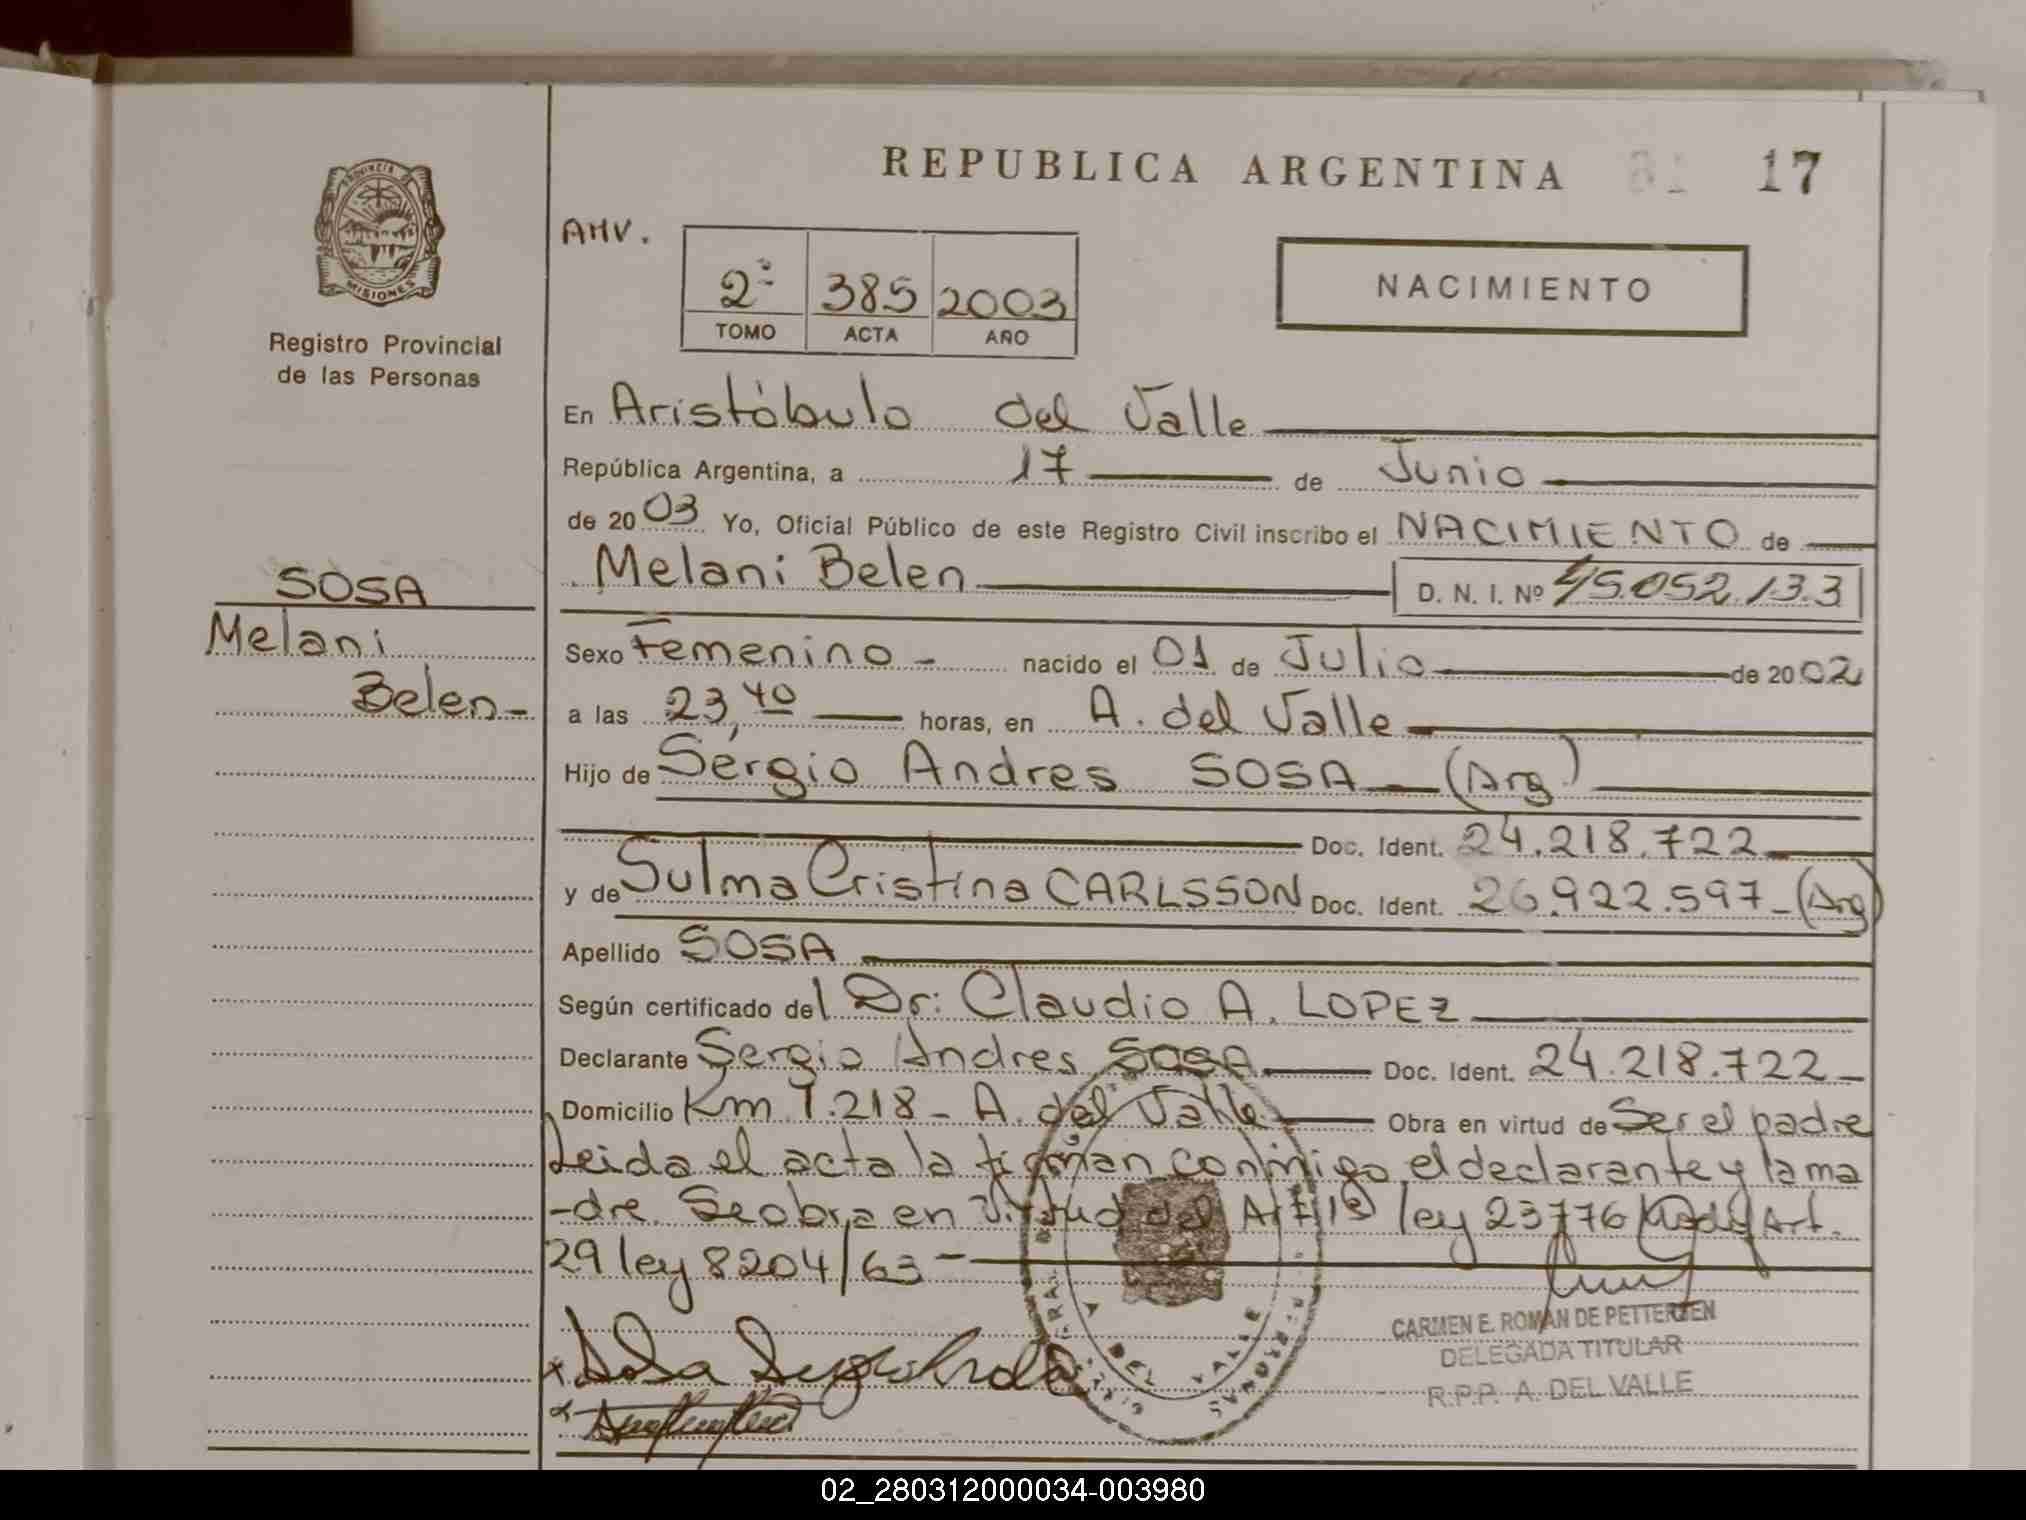 REPUBLICA ARGENTINA 17
PROVINCIA DE
MISIONES
Registro Provincial
de las Personas
AHV.
2º 385 2003
TOMO ACTA AÑO
NACIMIENTO
En Aristóbulo del Valle
República Argentina, a 17 de Junio
de 2003 Yo, Oficial Público de este Registro Civil inscribo el NACIMIENTO de
SOSA
Melani
Belen
Melani Belen D. N. I. Nº 45.052.133
Sexo Femenino nacido el 01 de Julio de 2002
a las 23,40 horas, en A. del Valle
Hijo de Sergio Andres SOSA (Arg)
Doc. Ident. 24.218.722
y de Sulma Cristina CARLSSON Doc. Ident. 26.922.597 (Arg)
Apellido SOSA
Según certificado del Dr: Claudio A. LOPEZ
Declarante Sergio Andres SOSA Doc. Ident. 24.218.722
Domicilio Km 1.218 - A. del Valle Obra en virtud de Ser el padre
Leida el acta la firman conmigo el declarante y la ma
-dre. Se obra en virtud del Art 1º ley 23776 Art.
29 ley 8204/63 -
CARMEN E. ROMAN DE PETTERSEN
DELEGADA TITULAR
R.P.P. A. DEL VALLE
A DEL VALLE
02_280312000034-003980